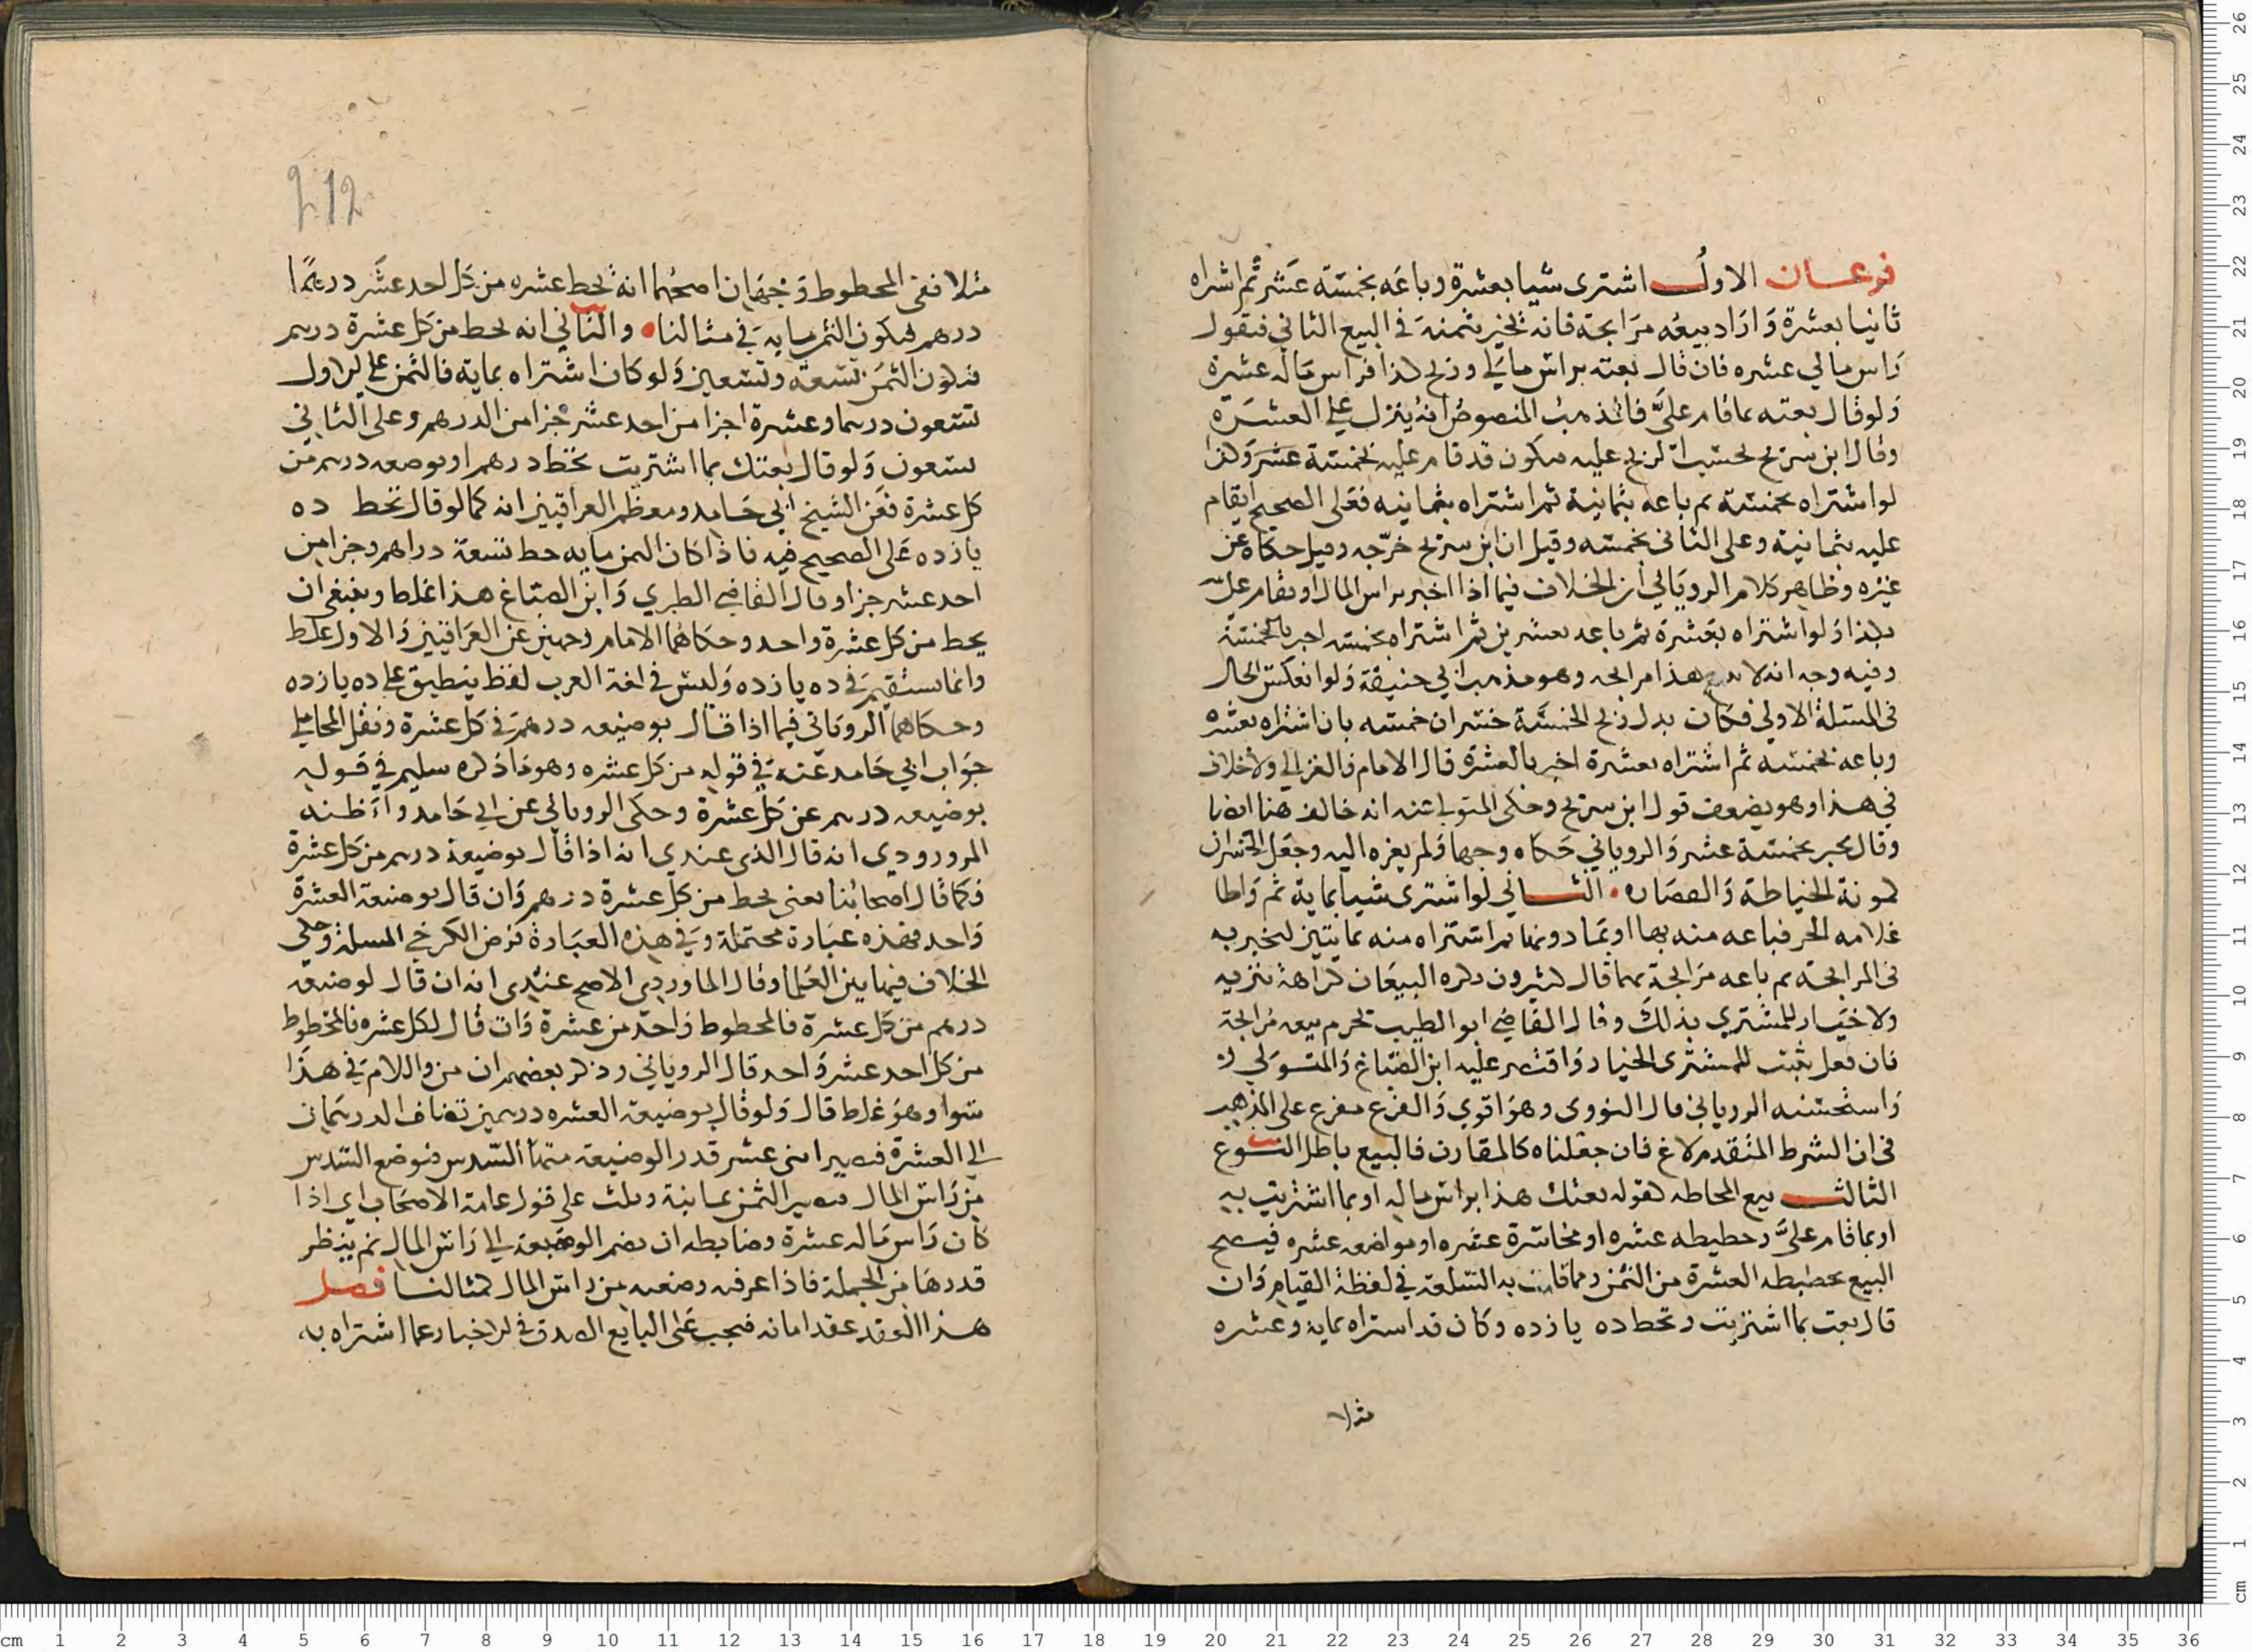 فرعان الاول اشترى شيا بعشرة وباعه بخمسة عشر ثم اشراه
ثانيا بعشرة واراد بيعه مرابحة فانه يخبر بثمنه في البيع الثاني فيقول
راس مالي عشره فان قال بعته براس مالي وربح كذا فراس ماله عشرة
ولو قال بعته بما قام علي فالمذهب المنصوص انه ينزل على العشرة
وقال ابن سريج يحسب الربح عليه فيكون قد قام عليه بخمسة عشر وكذا
لو اشتراه بخمسة ثم باعه بثمانية ثم اشتراه بثمانيه فعلى الصحيح يقام
عليه بثمانية وعلى الثاني بخمسه وقيل ان ابن سريج خرجه وقيل حكاه عن
غيره وظاهر كلام الروياني ان الخلاف فيما اذا اخبر براس المال او بقام على
بكذا ولو اشتراه بعشرة ثم باعه بعشرين ثم اشتراه بخمسه اخبر بالخمسة
وفيه وجه انه لا يبيع هذا مرابحه وهو مذهب ابي حنيفة ولو انعكس الحال
في المسئلة الاولى فكان بدل ربح الخمسة خسران خمسه بان اشتراه بعشره
وباعه بخمسه ثم اشتراه بعشرة اخبر بالعشرة قال الامام والغزالي ولا خلاف
في هذا وهو يضعف قول ابن سريج وحكى المتولي عنه انه خالف هنا ايضا
وقال يخبر بخمسة عشر والروياني حكاه وجها ولم يعزه اليه وجعل الخسران
كمونة الخياطة والقصاره • الثاني لو اشترى شيا بماية ثم واطا
غلامه الحر فباعه منه بها او بما دونها ثم اشتراه منه بمايتين ليخبر به
في المرابحة ثم باعه مرابحة بهما قال كثيرون يكره البيعان كراهة تنزيه
ولا خيار للمشتري بذلك وقال القاضي ابو الطيب يحرم بيعه مرابحة
فان فعل ثبت للمشترى الخيار واقتصر عليه ابن الصباغ والمتولي
واستحسنه الروياني قال النووى وهو اقوي والفرع مفرع على المذهب
في ان الشرط المتقدم لاغ فان جعلناه كالمقارن فالبيع باطل النوع
الثالث بيع المحاطه كقوله بعتك هذا براس ماله او بما اشتريت به
او بما قام علي وحطيطه عشره او مخاسرة عشره او مواضعه عشره فيصح
البيع بحطيطه العشرة من الثمن ومما قامت به السلعة في لفظة القيام وان
قال بعت بما اشتريت وتحط ده يازده وكان قد اشتراه بماية وعشره
مثلا
212
مثلا ففي المحطوط وجهان اصحهما انه يحط عشره من كل احد عشر درهما
درهم فيكون الثمن مايه في مثالنا • والثاني انه يحط من كل عشرة درهم
فيكون الثمن تسعه وتسعين ولو كان اشتراه بماية فالثمن على الاول
تسعون درهما وعشرة اجزا من احد عشر جزا من الدرهم وعلى الثاني
تسعون ولو قال بعتك بما اشتريت بحط درهم او بوضعه درهم من
كل عشرة فعن الشيخ ابي حامد ومعظم العراقيين انه كما لو قال بحط ده
يازده على الصحيح فيه فاذا كان الثمن مايه حط تسعة دراهم وجزا من
احد عشر جزا وقال القاضي الطبري وابن الصباغ هذا غلط وينبغي ان
يحط من كل عشرة واحد وحكاهما الامام وجهين عن العراقيين والاول غلط
وانما يستقيم في ده يازده وليس في لغة العرب لفظ ينطبق على ده يازده
وحكاهما الروياني فيما اذا قال بوضيعه درهم في كل عشرة ونقل المحاملي
جواب ابي حامد عنه في قوله من كل عشره وهو ما ذكره سليم في قوله
بوضيعه درهم عن كل عشرة وحكى الروياني عن ابي حامد واظنه
المرورودي انه قال الذي عندي انه اذا قال بوضيعة درهم من كل عشرة
فكما قال اصحابنا يعني يحط من كل عشرة درهم وان قال بوضيعة العشرة
واحد فهذه عبارة محتملة وفي هذه العبارة فرض الكرخي المسلة وحكي
الخلاف فيها بين العلما وقال الماوردي الاصح عندي انه ان قال لوضيعه
درهم من كل عشرة فالمحطوط واحد من عشرة وان قال لكل عشره فالمحطوط
من كل احد عشر واحد قال الروياني وذكر بعضهم ان من واللام في هذا
سوا وهو غلط قال ولو قال بوضيعة العشره درهمين تضاف الدرهمان
الى العشرة فتصير اثنى عشر قدر الوضيعة منها السدس فتوضع السدس
من راس المال فيصير الثمن ثمانية وثلث على قول عامة الاصحاب اي اذا
كان راس ماله عشرة وضابطه ان يضم الوضيعة الى راس المال ثم ينظر
قدرها من الجملة فاذا عرف وضعه من راس المال كمثالنا فصل
هذا العقد عقد امانه فيجب على البايع الصدق في الاخبار عما اشتراه به